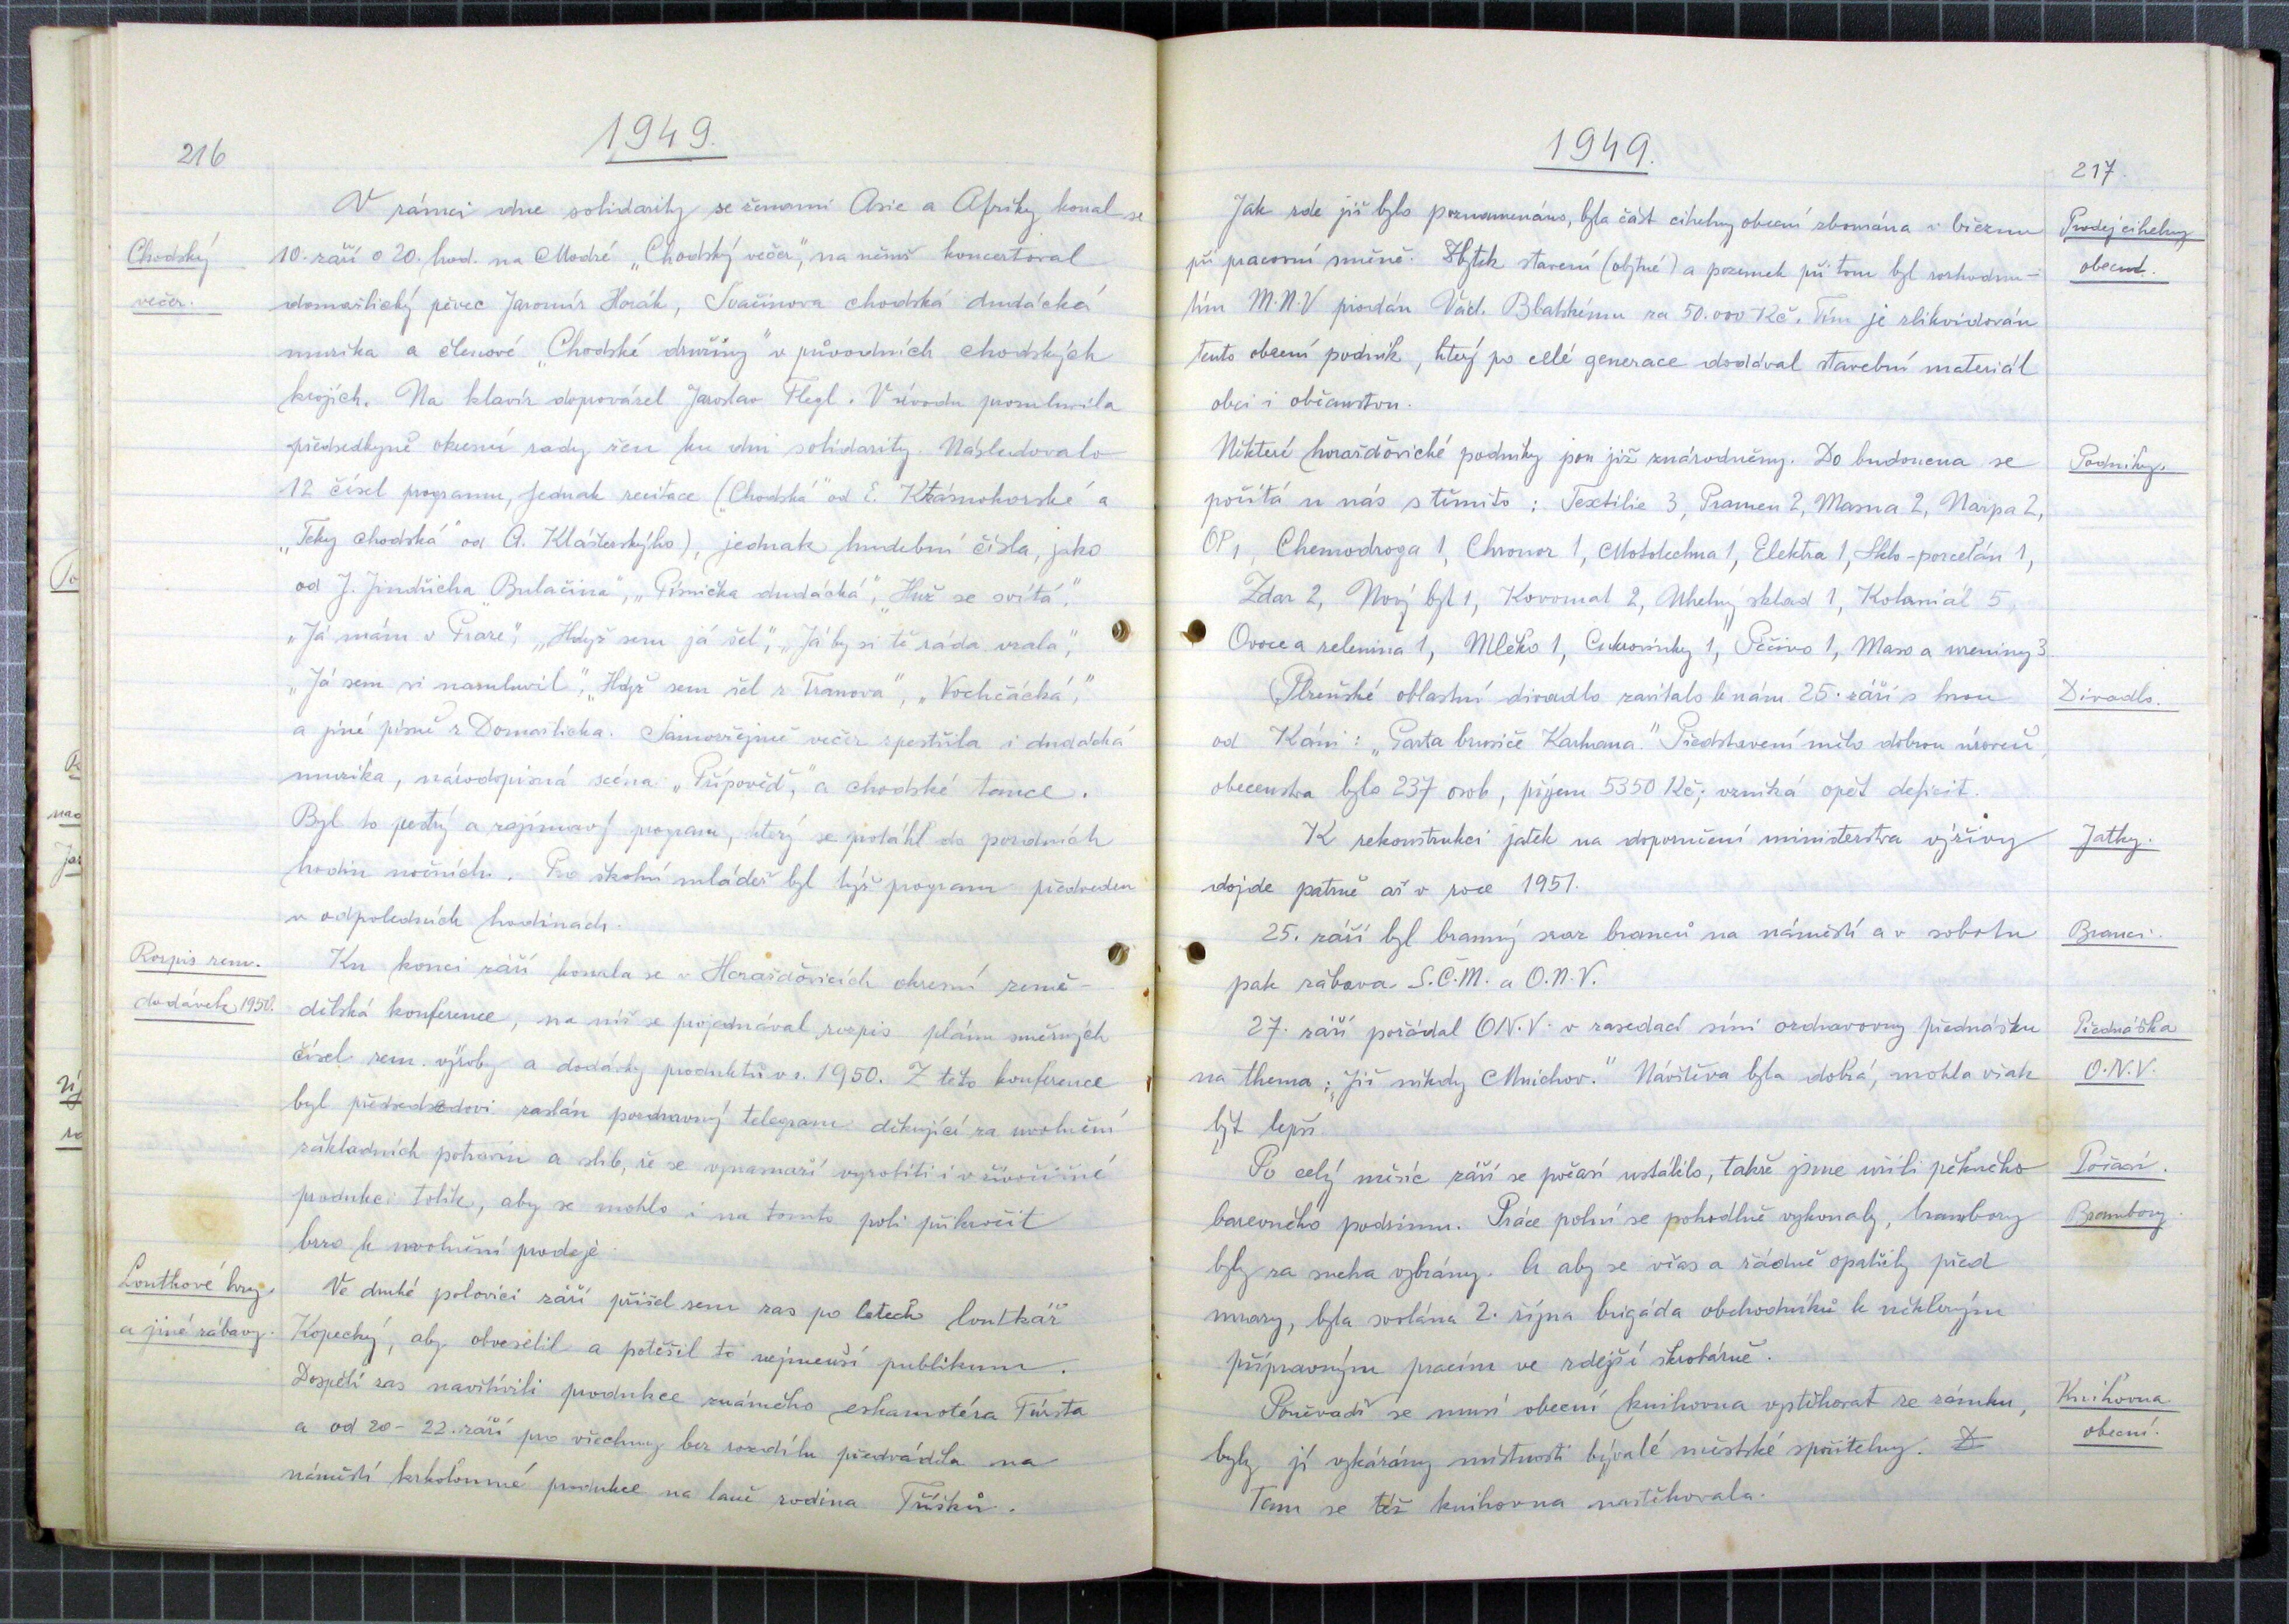 216
1949.
V rámci dne solidarity se ženami Asie a Afriky konal se
Chodský
večer.
10. září o 20. hod. na Modré „Chodský večer", na němž koncertoval
domažlický pěvec Jaromír Horák, Svačinova chodská dudácká
muzika a členové „Chodské družiny" v původních chodských
krojích. Na klavír doprovázel Jaroslav Flegl. V úvodu promluvila
předsedkyně okresní rady žen ku dni solidarity. Následovalo
12 čísel programu, jednak recitace („Chodská" od E. Krásnohorské a
„Teky chodská" od A. Klášterského), jednak hudební čísla, jako
od J. Jindřicha „Bulačina", „Písnička dudácká", „Huž se svítá",
„Já mám v Praze", „Hdyž sem já šel", „Já by si tě ráda vzala",
„Já sem si namluvil", „Hdyž sem šel z Tranova", „Vochčácká",
a jiné písně z Domažlicka. Samozřejmě večer zpestřila i dudácká
muzika, národopisná scéna „Přípověď", a chodské tance.
Byl to pestrý a zajímavý program, který se protáhl do pozdních
hodin nočních. Pro školní mládež byl týž program předveden
v odpoledních hodinách.
Rozpis zem.
dodávek 1950.
Ku konci září konala se v Horažďovicích okresní země-
dělská konference, na níž se projednával rozpis plánu směrných
čísel zem. výroby a dodávky produktů v r. 1950. Z této konference
byl předsedovi zaslán pozdravný telegram děkující za uvolnění
základních potravin a slib, že se vynasnaží vyrobiti i v živočišné
produkci tolik, aby se mohlo i na tomto poli přikročit
brzo k uvolnění prodeje.
Loutkové hry
a jiné zábavy.
Ve druhé polovici září přišel sem zas po letech loutkář
Kopecký, aby obveselil a potěšil to nejmenší publikum.
Dospělí zas navštívili produkce známého eskamotéra Fürsta
a od 20 - 22. září pro všechny bez rozdílu předváděla na
náměstí krkolomné produkce na laně rodina Tříšků.
1949.
217.
Jak zde již bylo poznamenáno, byla část cihelny obecní zbourána v březnu
Prodej cihelny
obecní.
při pracovní směně. Zbytek stavení (obytné) a pozemek při tom byl rozhodnu-
tím M.N.V prodán Václ. Blatskému za 50.000 Kč. Tím je zlikvidován
tento obecní podnik, který po celé generace dodával stavební materiál
obci i občanstvu.
Některé horažďovické podniky jsou již znárodněny. Do budoucna se
Podniky.
počítá u nás s těmito: Textilie 3, Pramen 2, Masna 2, Narpa 2,
OP 1, Chemodroga 1, Chronor 1, Mototechna 1, Elektra 1, Sklo-porcelán 1,
Zdar 2, Nový byt 1, Kovomat 2, Uhelný sklad 1, Koloniál 5,
Ovoce a zelenina 1, Mléko 1, Cukrovinky 1, Pečivo 1, Maso a uzeniny 3.
Plzeňské oblastní divadlo zavítalo k nám 25. září s hrou
Divadlo.
od Káni: „Parta brusiče Karhana." Představení mělo dobrou úroveň,
obecenstva bylo 237 osob, příjem 5350 Kč; vzniká opět deficit.
K rekonstrukci jatek na doporučení ministerstva výživy
Jatky.
dojde patrně až v roce 1951.
25. září byl branný sraz branců na náměstí a v sobotu
Branci.
pak zábava S.Č.M. a O.N.V.
27. září pořádal O.N.V. v zasedací síni ozdravovny přednášku
Přednáška
O.N.V.
na thema: „Již nikdy Mnichov." Návštěva byla dobrá, mohla však
být lepší.
Po celý měsíc září se počasí ustálilo, takže jsme užili pěkného
Počasí.
barevného podzimu. Práce polní se pohodlně vykonaly, brambory
Brambory.
byly za sucha vybrány. A aby se včas a řádně opatřily před
mrazy, byla svolána 2. října brigáda obchodníků k některým
přípravným pracím ve zdejší škrobárně.
Poněvadž se musí obecní knihovna vystěhovat ze zámku,
Knihovna
obecní.
byly jí vykázány místnosti bývalé městské spořitelny.
Tam se též knihovna nastěhovala.